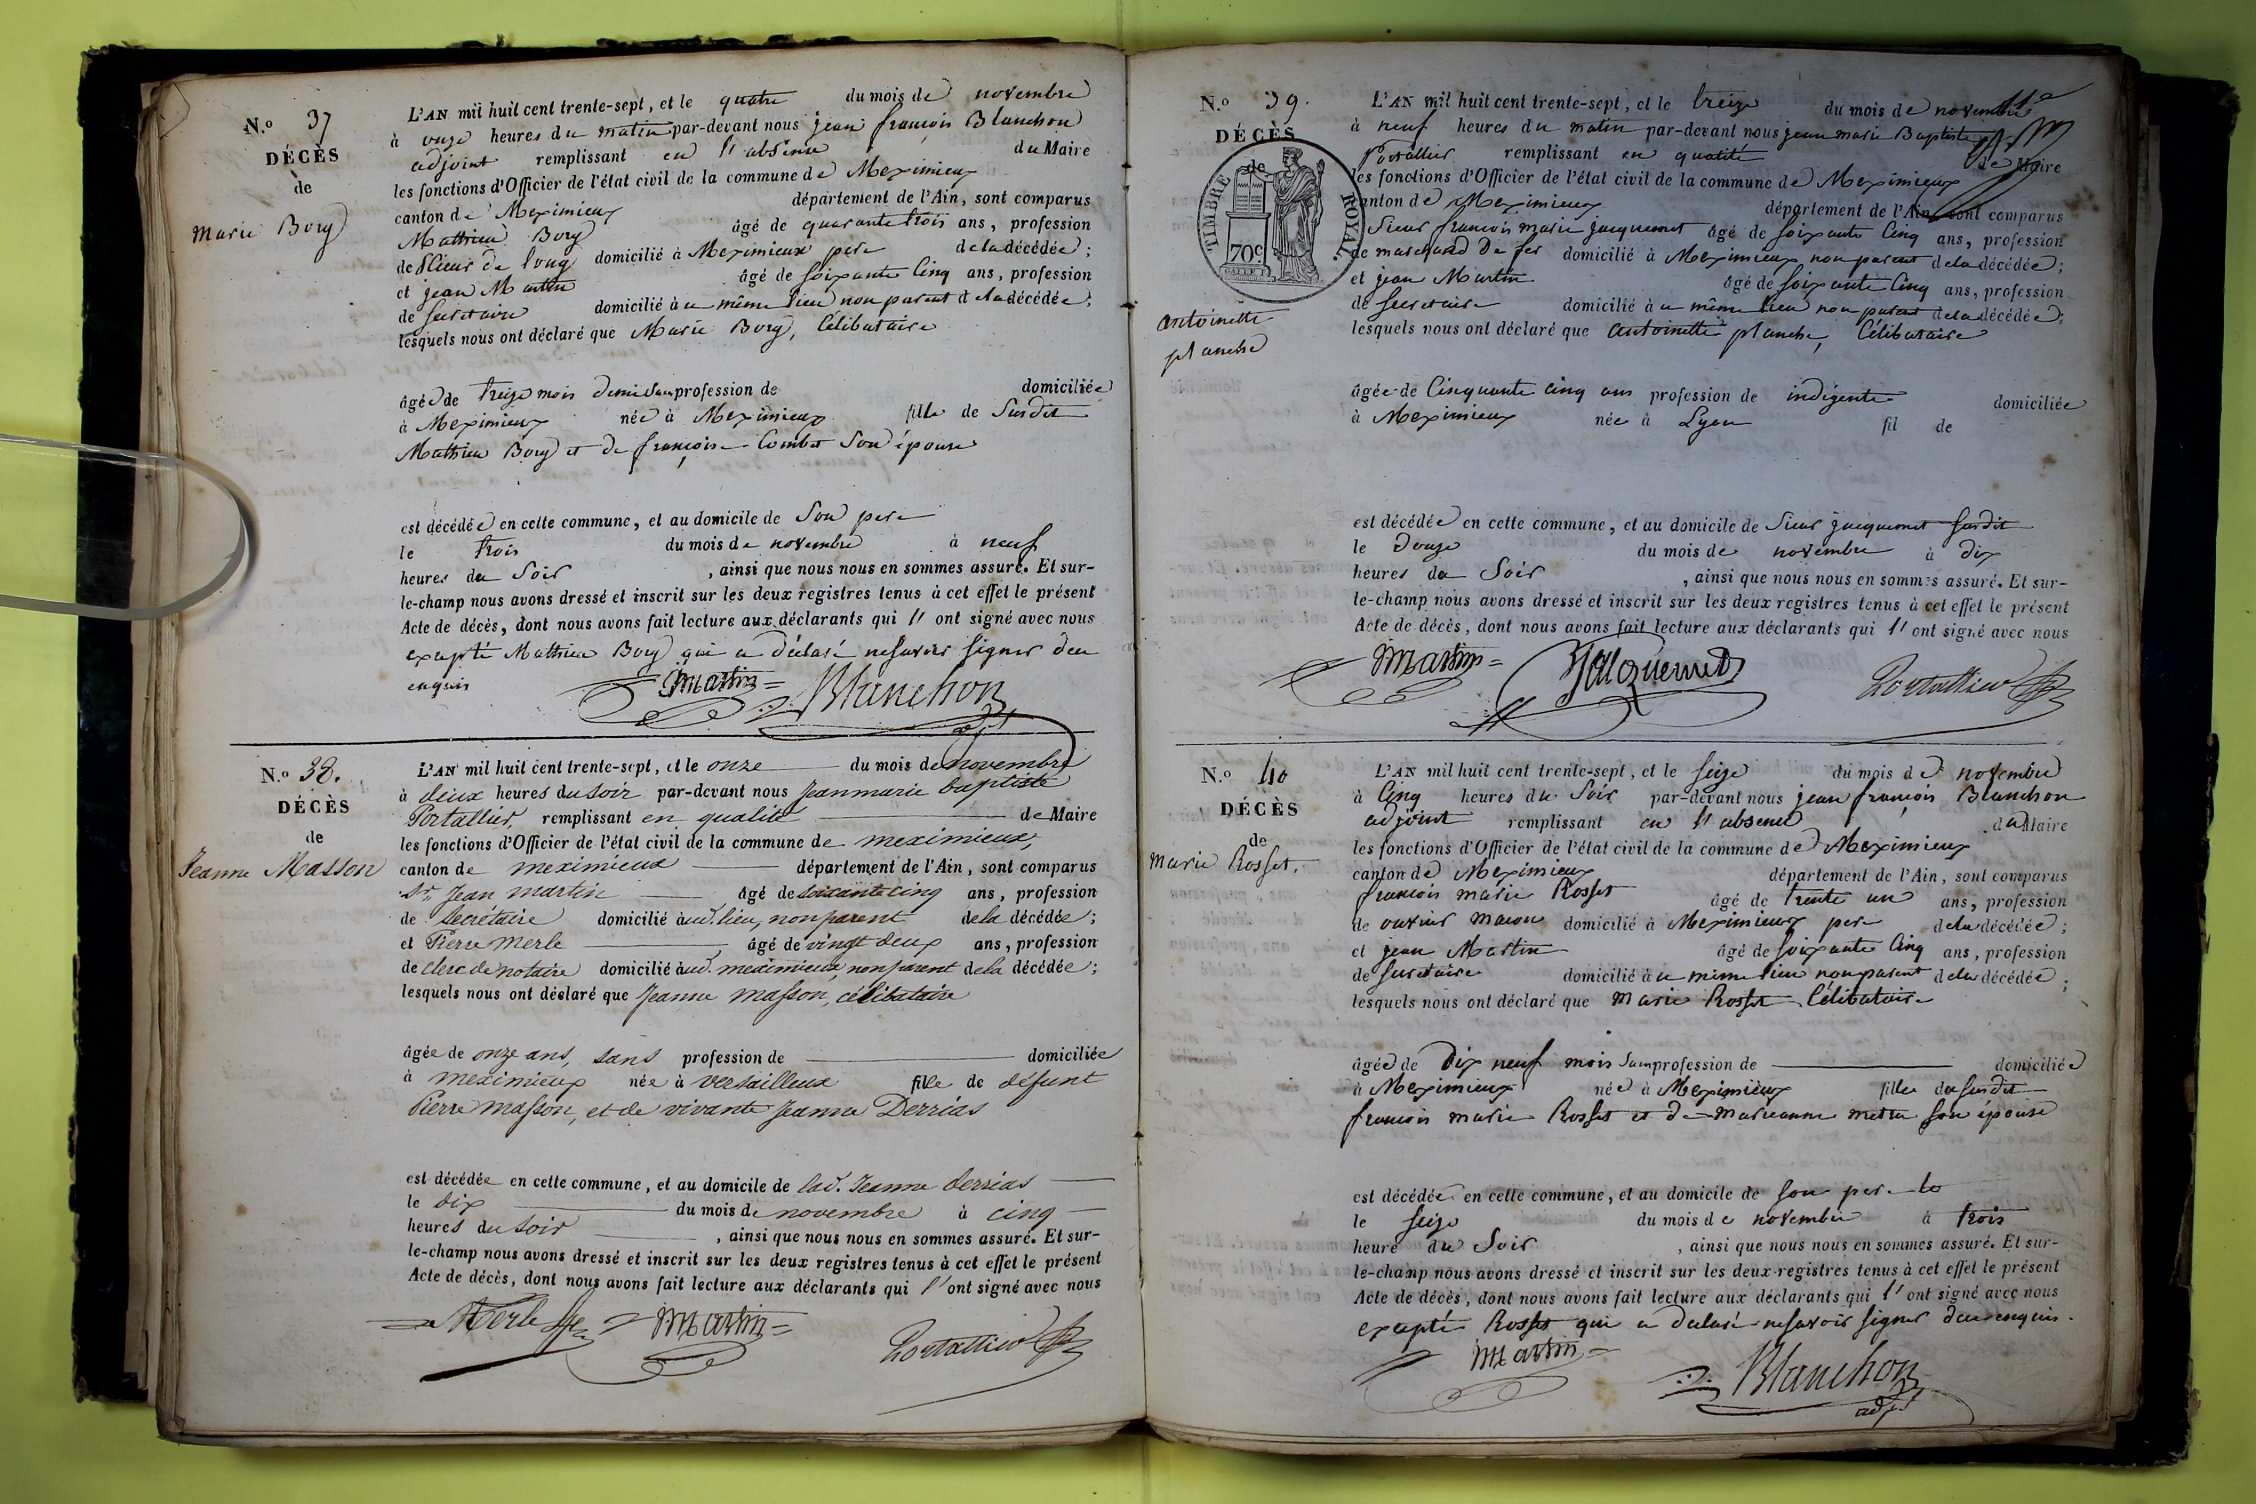 N.o 37
DÉCÈS
de
Marie Bory
L'AN mil huit cent trente-sept, et le quatre du mois de novembre
à onze heures du matin par-devant nous jean françois Blanchon
adjoint remplissant en l'absence du Maire
les fonctions d'Officier de l'état civil de la commune de Meximieux
canton de Meximieux département de l'Ain, sont comparus
Mathieu Bory âgé de quarante trois ans, profession
de domicilié à Meximieux pere de la décédée;
et jean Martin âgé de soixante Cinq ans, profession
de secretaire domicilié à ce même lieu non parent de la décédée;
lesquels nous ont déclaré que Marie Bory, Célibataire
âgée de treize mois demi sans profession de domiciliée
à Meximieux née à Meximieux fille de susdit
Mathieu Bory et de françoise Combet son épouse
est décédée en cette commune, et au domicile de son pere
le trois du mois de novembre à neuf
heures du soir, ainsi que nous nous en sommes assuré. Et sur-
le-champ nous avons dressé et inscrit sur les deux registres tenus à cet effet le présent
Acte de décès, dont nous avons fait lecture aux déclarants qui l' ont signé avec nous
excepté Mathieu Bory qui a déclaré ne savoir signer de ce
enquis
Martin Blanchon
adjt
N.o 38.
DÉCÈS
de
Jeanne Masson
L'AN mil huit cent trente-sept, et le onze du mois de novembre
à deux heures du soir par-devant nous Jean marie baptiste
Portallier, remplissant en qualité de Maire
les fonctions d'Officier de l'état civil de la commune de meximieux,
canton de meximieux département de l'Ain, sont comparus
Sr. Jean martin âgé de soixante cinq ans, profession
de Secrétaire domicilié aud. lieu, non parent de la décédée;
et Pierre Merle âgé de vingt deux ans, profession
de clerc de notaire domicilié aud. meximieux non parent de la décédée;
lesquels nous ont déclaré que Jeanne masson, célibataire
âgée de onze ans, sans profession de domiciliée
à meximieux née à versailleux fille de défunt
Pierre masson, et de vivante Jeanne Derrias
est décédée en cette commune, et au domicile de lad. Jeanne derrias
le dix du mois de novembre à cinq
heures du soir, ainsi que nous nous en sommes assuré. Et sur-
le-champ nous avons dressé et inscrit sur les deux registres tenus à cet effet le présent
Acte de décès, dont nous avons fait lecture aux déclarants qui l' ont signé avec nous
Merle Martin Portallier
N.o 39.
DÉCÈS
de
TIMBRE ROYAL
70c
antoinette
planche
L'AN mil huit cent trente-sept, et le treize du mois de novembre
à neuf heures du matin par-devant nous jean marie Baptiste
Portallier remplissant en qualité de Maire
les fonctions d'Officier de l'état civil de la commune de Meximieux
canton de Meximieux département de l'Ain, sont comparus
Sieur françois marie jacquemet âgé de soixante Cinq ans, profession
de marchand de fer domicilié à Meximieux non parent de la décédée;
et jean Martin âgé de soixante Cinq ans, profession
de secretaire domicilié à ce même lieu non parent de la décédée;
lesquels nous ont déclaré que antoinette planche, Célibataire
âgée de Cinquante cinq ans profession de indigente domiciliée
à Meximieux née à Lyon fil de
est décédée en cette commune, et au domicile de Sieur jacquemet susdit
le douze du mois de novembre à dix
heures du soir, ainsi que nous nous en sommes assuré. Et sur-
le-champ nous avons dressé et inscrit sur les deux registres tenus à cet effet le présent
Acte de décès, dont nous avons fait lecture aux déclarants qui l' ont signé avec nous
Martin Jacquemet Portallier
N.o 40
DÉCÈS
de
Marie Rosset.
L'AN mil huit cent trente-sept, et le seize du mois de novembre
à Cinq heures du soir par-devant nous jean françois Blanchon
adjoint remplissant en l'absence du Maire
les fonctions d'Officier de l'état civil de la commune de Meximieux
canton de Meximieux département de l'Ain, sont comparus
françois marie Rosset âgé de trente un ans, profession
de ouvrier macon domicilié à Meximieux pere de la décédée;
et jean Martin âgé de soixante Cinq ans, profession
de secretaire domicilié à ce meme lieu non parent de la décédée;
lesquels nous ont déclaré que Marie Rosset Célibataire
âgée de Dix neuf mois sans profession de domiciliée
à Meximieux née à Meximieux fille du susdit
françois marie Rosset et de marieanne son épouse
est décédée en cette commune, et au domicile de son pere
le seize du mois de novembre à trois
heure du soir, ainsi que nous nous en sommes assuré. Et sur-
le-champ nous avons dressé et inscrit sur les deux registres tenus à cet effet le présent
Acte de décès, dont nous avons fait lecture aux déclarants qui l' ont signé avec nous
excepté Rosset qui a déclaré ne savoir signer de ce enquis.
Martin Blanchon
adjt